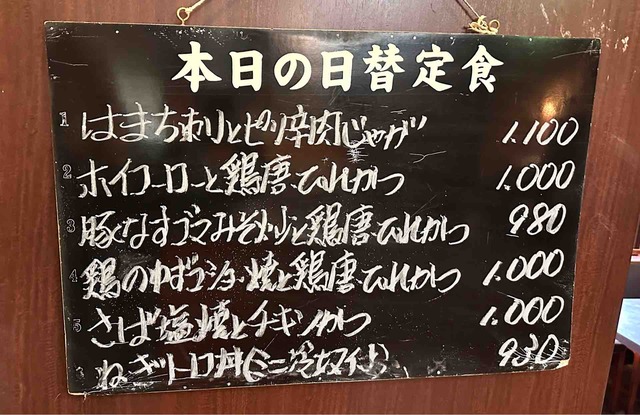 本日の日替定食
1 はまち刺りとピリ辛肉じゃが 1.100
2 ホイコーローと鶏唐ひれかつ 1.000
3 豚なすゴマみそ炒と鶏唐ひれかつ 980
4 鶏のゆずコショー焼と鶏唐ひれかつ 1.000
5 さば塩焼とチキンかつ 1.000
ねぎトロ丼(ミニ冷 付) 930